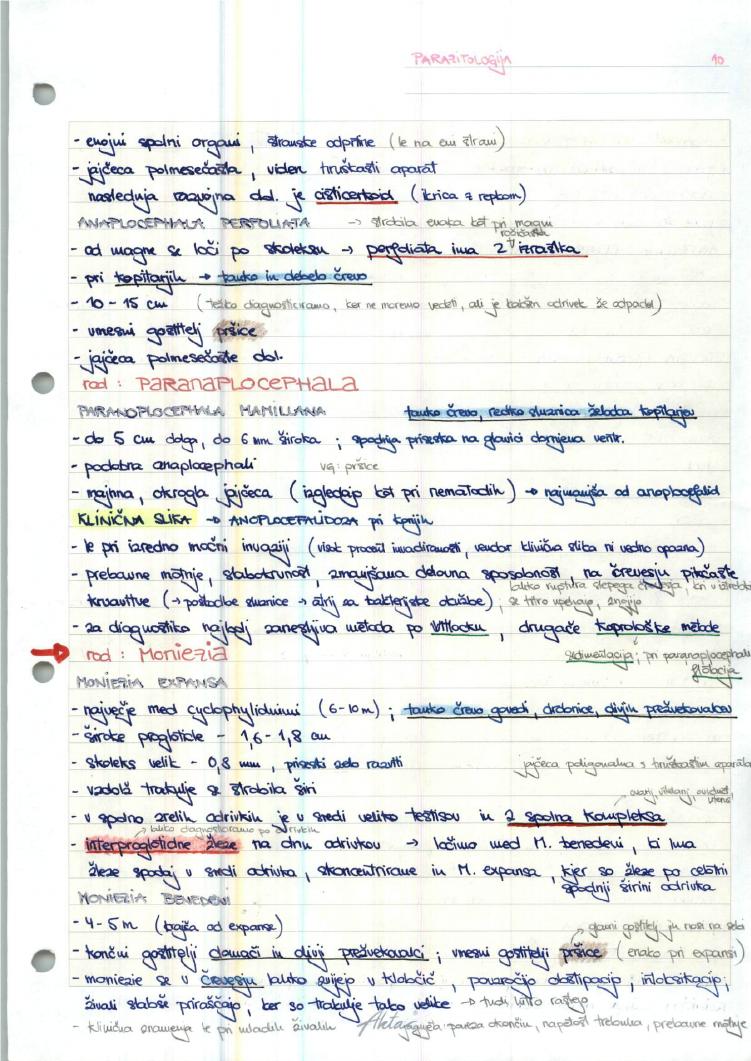 PARAZITOLOGIJA 10
- enojni spolni organi, stranske odprtine (le na eni strani)
- jajčeca polmesečasta, viden hruškasti aparat
naslednja razvojna obl. je cisticerkoid (ikrica z repom)
ANAPLOCEPHALA PERFOLIATA → strobila enaka kot pri magni
- od magne se loči po skoleksu → perfoliata ima 2 izrastka
- pri kopitarjih → tanko in debelo črevo
- 10 - 15 cm (težko diagnosticiramo, ker ne moremo vedeti, ali je kakšen odrivek že odpadel)
- vmesni gostitelj pršice
- jajčeca polmesečaste obl.
rod: PARANAPLOCEPHALA
PARANOPLOCEPHALA MAMILLANA tanko črevo, redko sluznica želodca kopitarjev
- do 5 cm dolga, do 6 mm široka; spodnja priseska na glavici obrnjena ventr.
- podobna anaplocephali vg: pršice
- majhna, okrogla jajčeca (izgledajo kot pri nematodih) → najmanjša od anoplocefalid
KLINIČNA SLIKA → ANOPLOCEFALIDOZA pri konjih
- le pri izredno močni invaziji (visok procent invadiranosti, vendar klinična slika ni vedno opazna)
- prebavne motnje, slabokrvnost, zmanjšana delovna sposobnost, na črevesju pikčaste
lahko ruptura slepega črevesja, kri v iztrebkih
krvavitve (→ poškodbe sluznice → atrij za bakterijske okužbe); se hitro upehajo, znojijo
- za diagnostiko najbolj zanesljiva metoda po Vitlocku, drugače koprološke metode
rod: Moniezia sedimentacija; pri paranaplocephali
flotacija
MONIEZIA EXPANSA
- največje med cyclophylidnimi (6-10 m); tanko črevo govedi, drobnice, divjih prežvekovalcev
- široke proglotide - 1,6 - 1,8 cm
- skoleks velik - 0,8 mm, priseski zelo razviti jajčeca poligonalna s hruškastim aparatom
- vzdolž trakulje se strobila širi
ovarij, vitelarij, ovidukt, uterus
- v spolno zrelih odrivkih je v sredi veliko testisov in 2 spolna kompleksa
→ lahko diagnosticiramo po odrivkih
- interproglotidne žleze na dnu odrivkov → ločimo med M. benedeni, ki ima
žleze spodaj v sredi odrivka, skoncentrirane in M. expansa, kjer so žleze po celotni
spodnji širini odrivka
MONIEZIA BENEDENI
- 4-5 m (krajša od expanse) glavni gostitelj jih nosi na sebi
- končni gostitelji domači in divji prežvekovalci; vmesni gostitelji pršice (enako pri expansi)
- moniezie se v črevesju lahko zvijejo v klobčič, povzročijo obstipacijo, intoksikacijo;
živali slabše priraščajo, ker so trakulje tako velike → tudi hitro rastejo
- klinična znamenja le pri mladih živalih pareza okončin, napetost trebuha, prebavne motnje